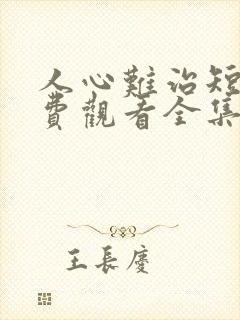 人心難治短
費觀看全集
王長慶